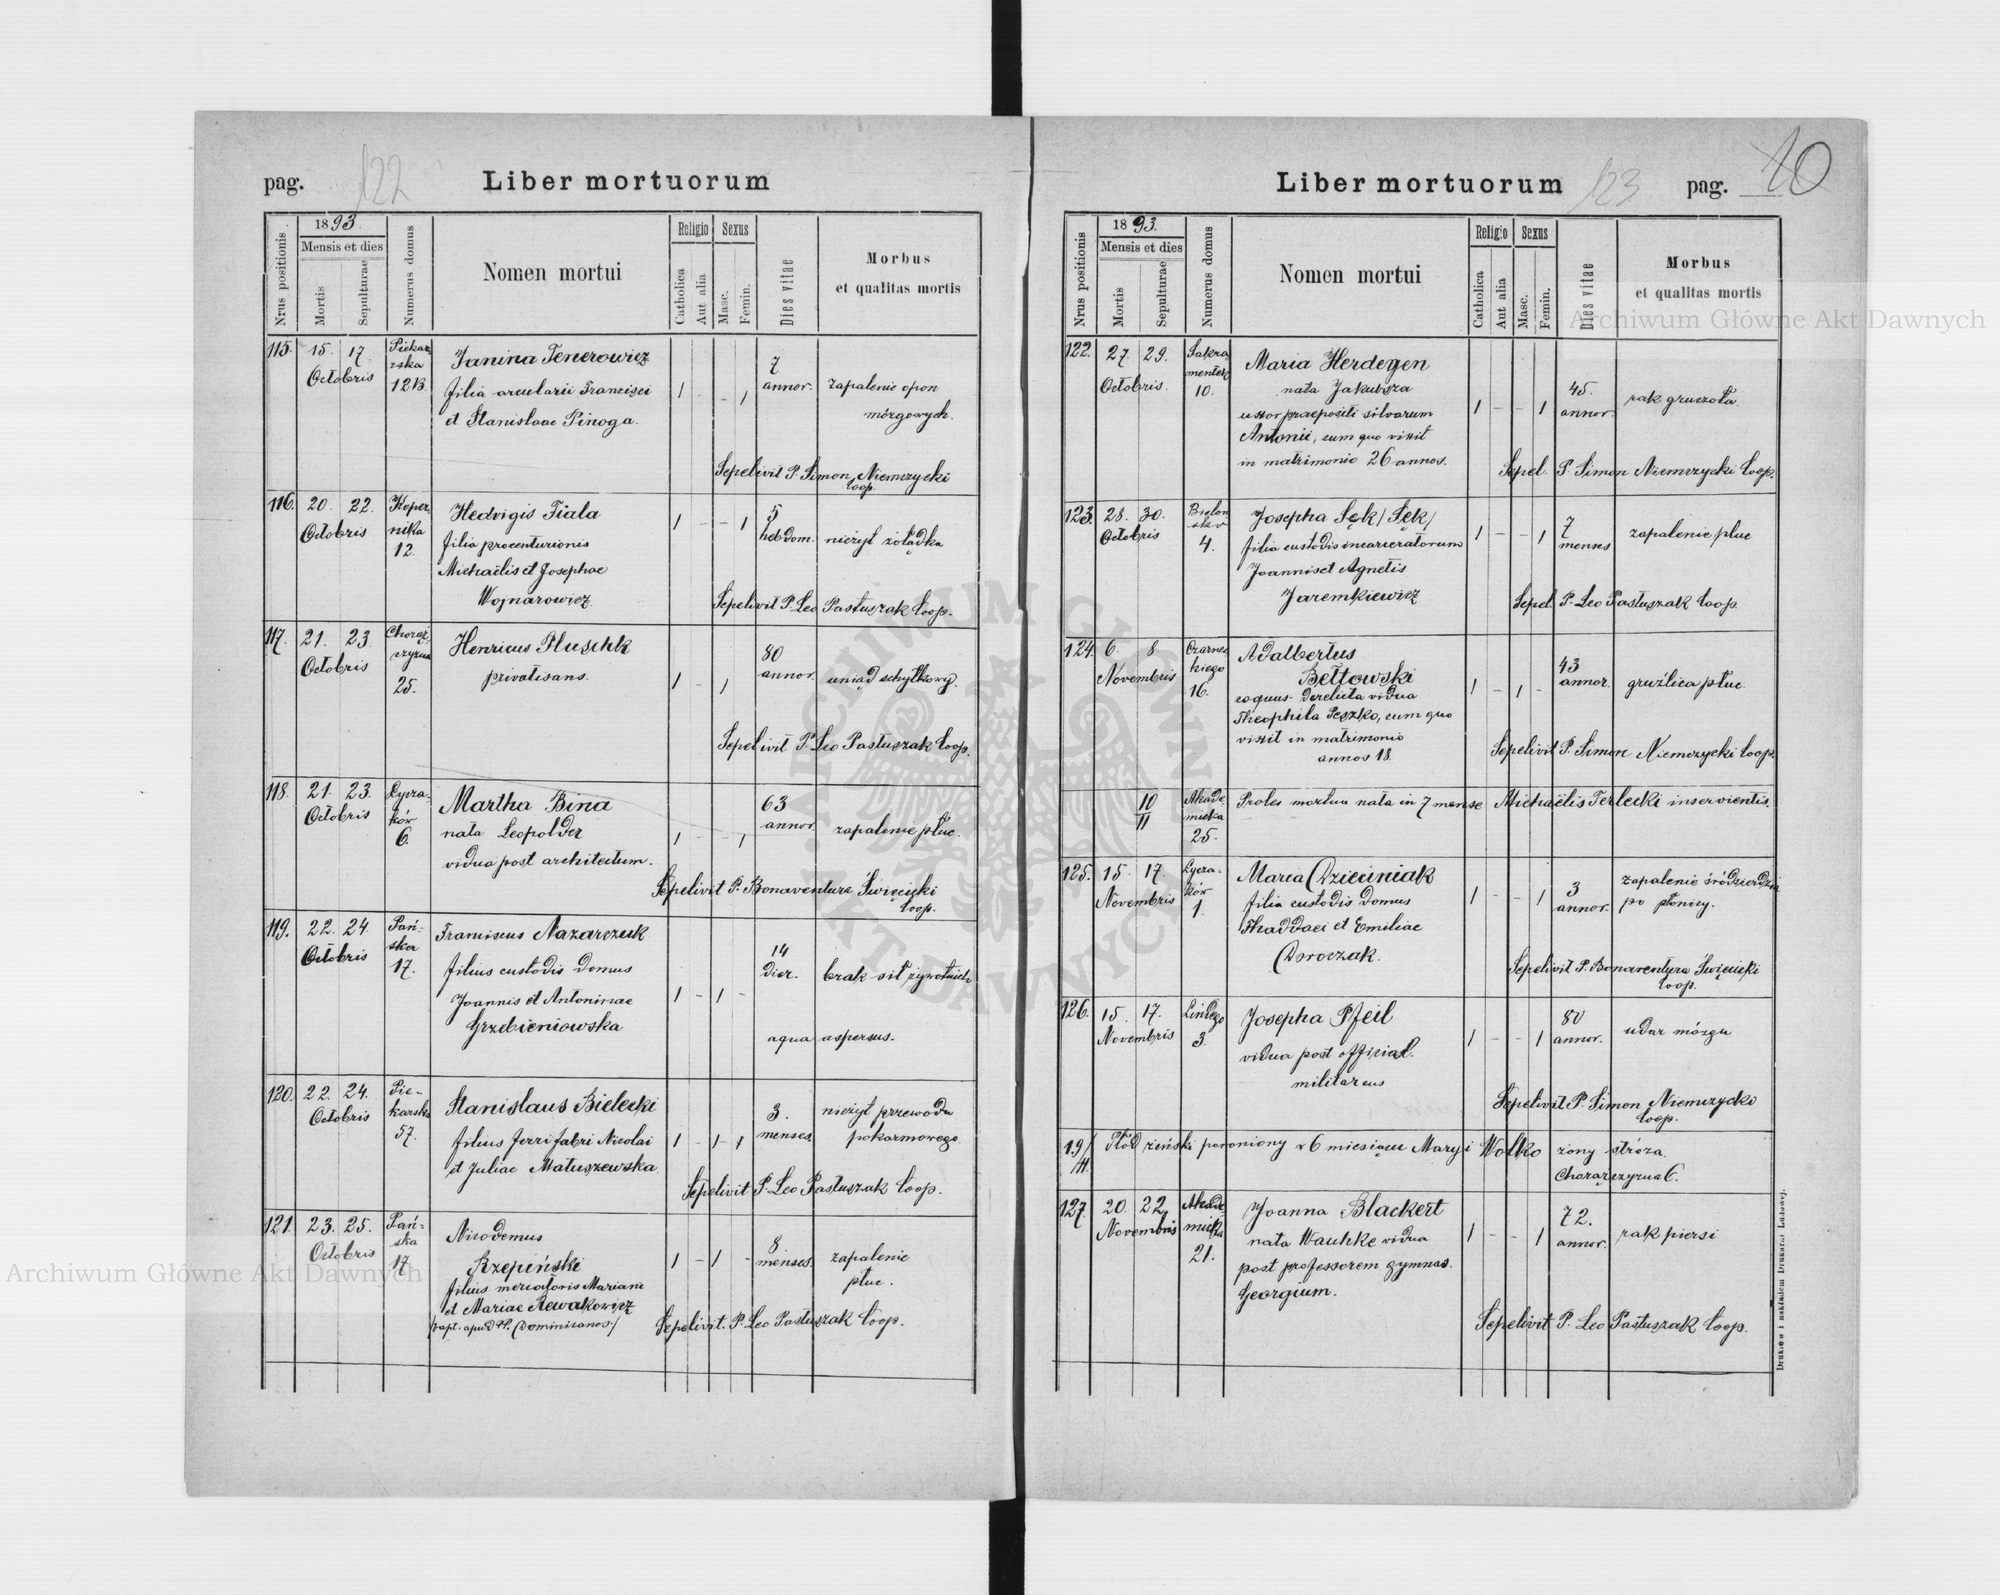 pag. 122
Liber mortuorum
Nrus positionis
1893.
Mensis et dies
Mortis
Sepulturae
Numerus domus
Nomen mortui
Religio
Catholica
Aut alia
Sexus
Masc.
Femin.
Dies vitae
Morbus
et qualitas mortis
115. 15. 17. Octobris
Piekarska
12B
Janina Tenerowicz
filia arcularii Francisci
et Stanislaae Pinoga.
1 - - 1
7
annor.
zapalenie opon
mózgowych.
Sepelivit P. Simon Niemczycki
Coop.
116. 20. 22. Octobris
Kopernika
12.
Hedvigis Fiala
filia procenturionis
Michaëlis et Josephae
Wojnarowicz
1 - - 1
5
hebdom.
nieżyt żołądka
Sepelivit P. Leo Pastuszak Coop.
117. 21. 23 Octobris
Chorążczyzna
25.
Henricus Pluschk
privatisans.
1 - 1
80
annor.
uwiąd schyłkowy.
Sepelivit P. Leo Pastuszak Coop.
118. 21. 23. Octobris
Łyczaków
6.
Martha Bina
nata Leopolder
vidua post architectum.
1 - - 1
63
annor.
zapalenie płuc.
Sepelivit P. Bonaventura Święcicki
Coop.
119. 22. 24. Octobris
Pańska
17.
Franciscus Nazarczuk
filius custodis domus
Joannis et Antoninae
Grzebieniowska
1 - 1 -
14
dier.
brak sił żywotnich
aqua aspersus.
120. 22. 24. Octobris
Piekarska
57.
Stanislaus Bielecki
filius ferri fabri Nicolai
et Juliae Matuszewska
1 - 1 - 1
3.
menses
nieżyt przewodu
pokarmowego
Sepelivit P. Leo Pastuszak Coop.
121. 23. 25. Octobris
Pańska
17
Nicodemus
Rzepiński
filius mercatoris Mariani
et Mariae Rewakowicz
/bapt. apud PP. Dominicanos./
1 - 1 -
8
menses.
zapalenie
płuc.
Sepelivit. P. Leo Pastuszak Coop.
Liber mortuorum
123
pag. 10
Nrus positionis
1893.
Mensis et dies
Mortis
Sepulturae
Numerus domus
Nomen mortui
Religio
Catholica
Aut alia
Sexus
Masc.
Femin.
Dies vitae
Morbus
et qualitas mortis
122. 27. 29. Octobris.
Sakramentek
10.
Maria Herdegen
nata Jakubsza
uxor praepositi silvarum
Antonii, cum quo vixit
in matrimonio 26 annos.
1 - - 1
45.
annor.
rak gruczoła.
Sepel. P. Simon Niemczycki Coop.
123. 28. 30. Octobris
4.
Josepha Sęk /Sęk/
filia custodis incarceratorum
Joannis et Agnetis
Jaremkiewicz
1 - - 1
7
menses
zapalenie płuc
Sepel. P. Leo Pastuszak Coop.
124. 6. 8. Novembris
Czarneckiego
16.
Adalbertus
Bełtowski
coquus - derelicta vidua
Theophila Peszko, cum quo
vixit in matrimonio
annos 18.
1 - 1 -
43
annor.
gruźlica płuc.
Sepelivit P. Simon Niemczycki Coop.
10/11
Akademicka
25.
Proles mortua nata in 7 mense Michaëlis Terlecki inservientis.
125. 15. 17. Novembris
Łyczaków
1.
Maria Dzieciniak
filia custodis domus
Thaddaei et Emiliae
Dworczak.
1 - - 1
3
annor.
zapalenie śródsierdzia
po płonicy.
Sepelivit P. Bonaventura Święcicki
Coop.
126. 15. 17. Novembris
Lindego
3.
Josepha Pfeil
vidua post official.
militareus
1 - - 1
80
annor.
udar mózgu
Sepelivit P. Simon Niemczycki
Coop.
19/11
Płód żeński poroniony w 6 miesiącu Maryi Wolko żony stróża.
Chorążczyzna 6.
127 20. 22. Novembris
Akademicka
21.
Joanna Blackert
nata Wauhke vidua
post professorem gymnas.
Georgium.
1 - - 1
72.
annor.
rak piersi
Sepelivit P. Leo Pastuszak Coop.
Drukiem i nakładem Drukarni Ludowej.
Archiwum Główne Akt Dawnych
Archiwum Główne Akt Dawnych
ARCHIWUM GŁÓWNE AKT DAWNYCH